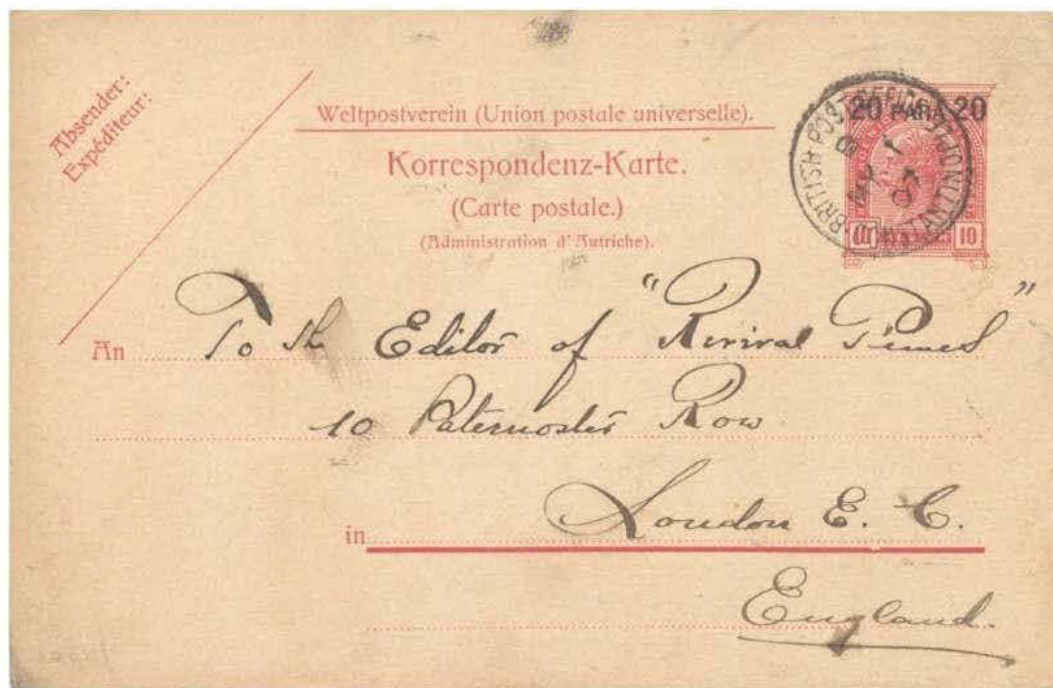 Absender:
Expéditeur:
Weltpostverein (Union postale universelle).
Korrespondenz-Karte.
(Carte postale.)
(Administration d'Autriche).
20 PARA 20
BRITISH POST OFFICE CONSTANTINOPLE
10 10
An To the Editor of "Revival Times"
10 Paternoster Row
in London E. C.
England.